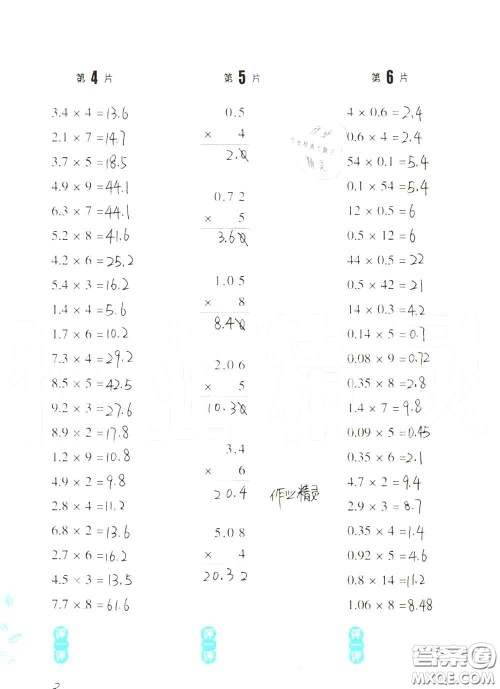 第 4 片
3.4 × 4 = 13.6
2.1 × 7 = 14.7
3.7 × 5 = 18.5
4.9 × 9 = 44.1
6.3 × 7 = 44.1
5.2 × 8 = 41.6
4.2 × 6 = 25.2
5.4 × 3 = 16.2
1.4 × 4 = 5.6
1.7 × 6 = 10.2
7.3 × 4 = 29.2
8.5 × 5 = 42.5
9.2 × 3 = 27.6
8.9 × 2 = 17.8
1.2 × 9 = 10.8
4.9 × 2 = 9.8
2.8 × 4 = 11.2
6.8 × 2 = 13.6
2.7 × 6 = 16.2
4.5 × 3 = 13.5
7.7 × 8 = 61.6
评一评
第 5 片
0.5
× 4
2.0
0.72
× 5
3.60
1.05
× 8
8.40
2.06
× 5
10.30
3.4
× 6
20.4
作业精灵
5.08
× 4
20.32
评一评
第 6 片
4 × 0.6 = 2.4
0.6 × 4 = 2.4
54 × 0.1 = 5.4
0.1 × 54 = 5.4
12 × 0.5 = 6
0.5 × 12 = 6
44 × 0.5 = 22
0.5 × 42 = 21
14 × 0.3 = 4.2
0.14 × 5 = 0.7
0.08 × 9 = 0.72
0.35 × 8 = 2.8
1.4 × 7 = 9.8
0.09 × 5 = 0.45
0.35 × 6 = 2.1
4.7 × 2 = 9.4
0.35 × 4 = 1.4
0.92 × 5 = 4.6
0.8 × 14 = 11.2
1.06 × 8 = 8.48
评一评
2
答案圈
MXQE.COM